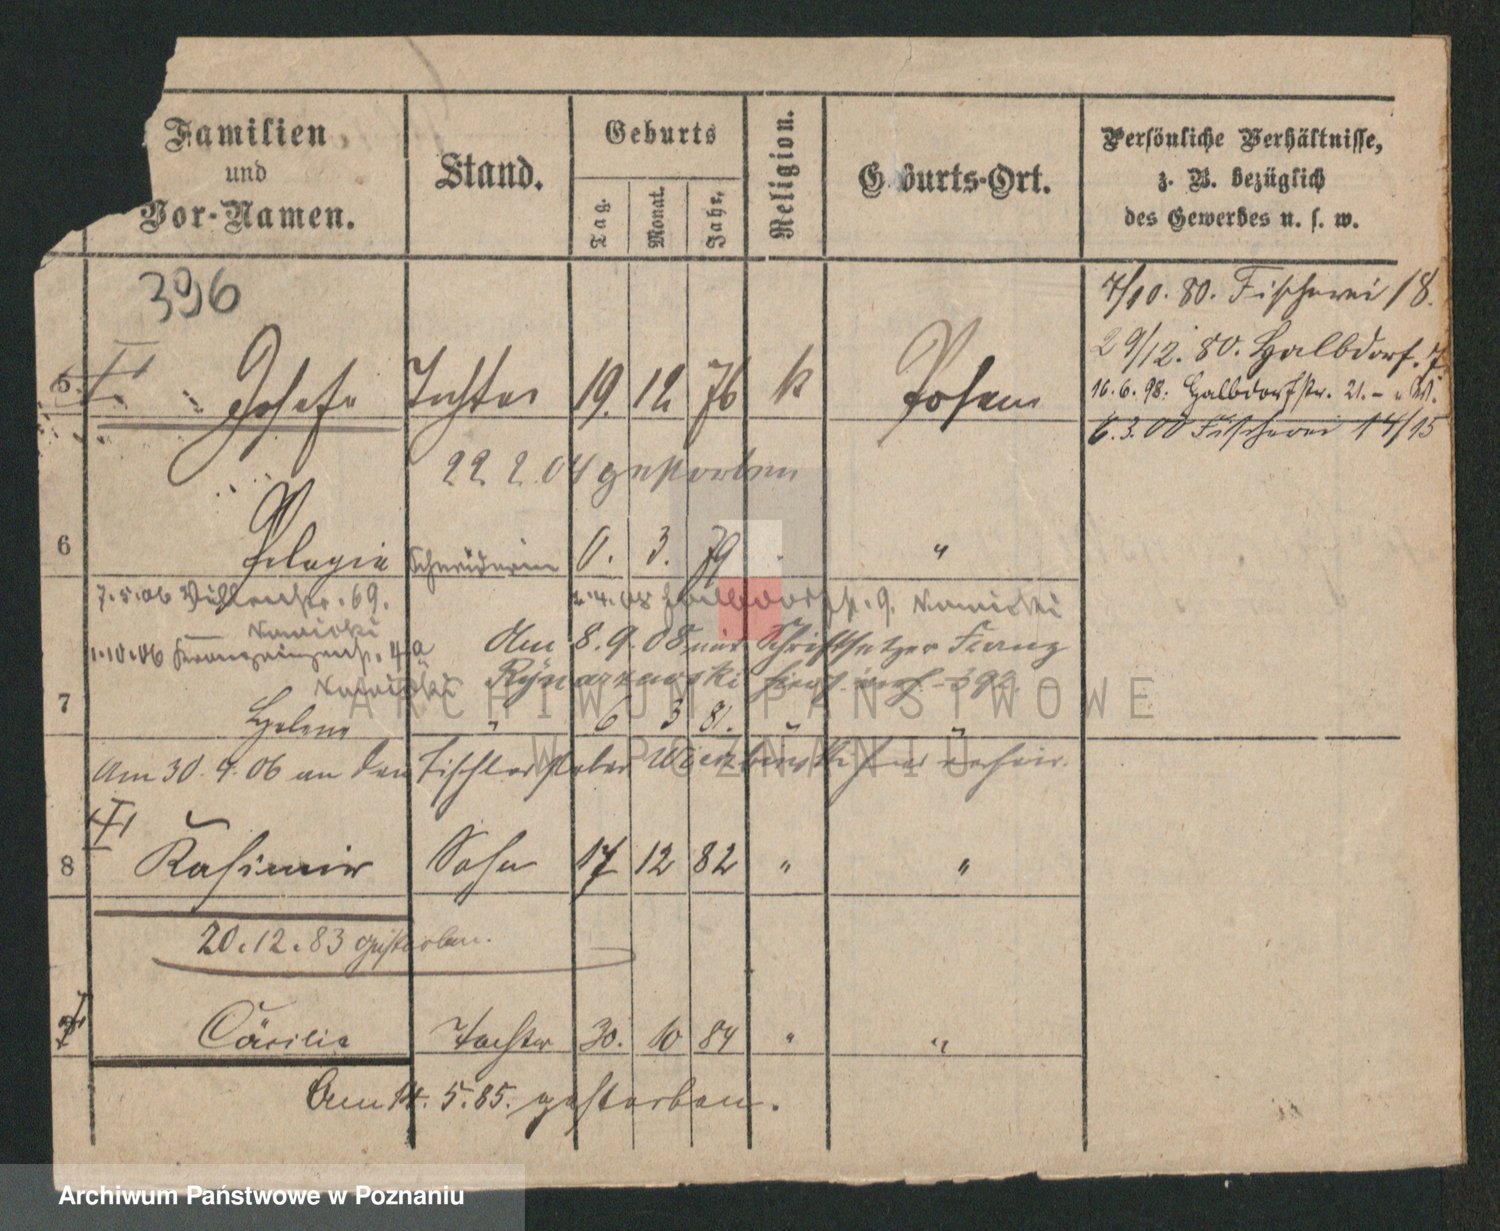 Familien
und
Vor-Namen.
Stand.
Geburts
Tag.
Monat.
Jahr.
Religion.
Geburts-Ort.
Persönliche Verhältnisse,
z. B. bezüglich
des Gewerbes u. s. w.
396
7/10. 80. Fischerei 18.
29/12. 80. Halbdorf. 7.
16. 6. 98. Halbdorfstr. 21. -
6. 3. 00 Fischerei 14/15
5. Josefa Tochter 19. 12 76 k Posen
22 2. 04 gestorben
6 Pelagia Schneiderin 0. 3. 79 "
7. 5. 06 69.
2. 4. 08 9. Kamicki
Kamicki
1. 10. 06 4a
Am 8. 9. 08 mit Schriftsetzer Franz
Kamicki
7 Helene " 6 3 81. " "
Am 30. 4. 06 an den Tischler
8 Kasimir Sohn 17 12 82 " "
20. 12. 83 gestorben.
Cäcilia Tochter 30. 10 84 " "
Am 14. 5. 85. gestorben.
ARCHIWUM PAŃSTWOWE
W POZNANIU
Archiwum Państwowe w Poznaniu